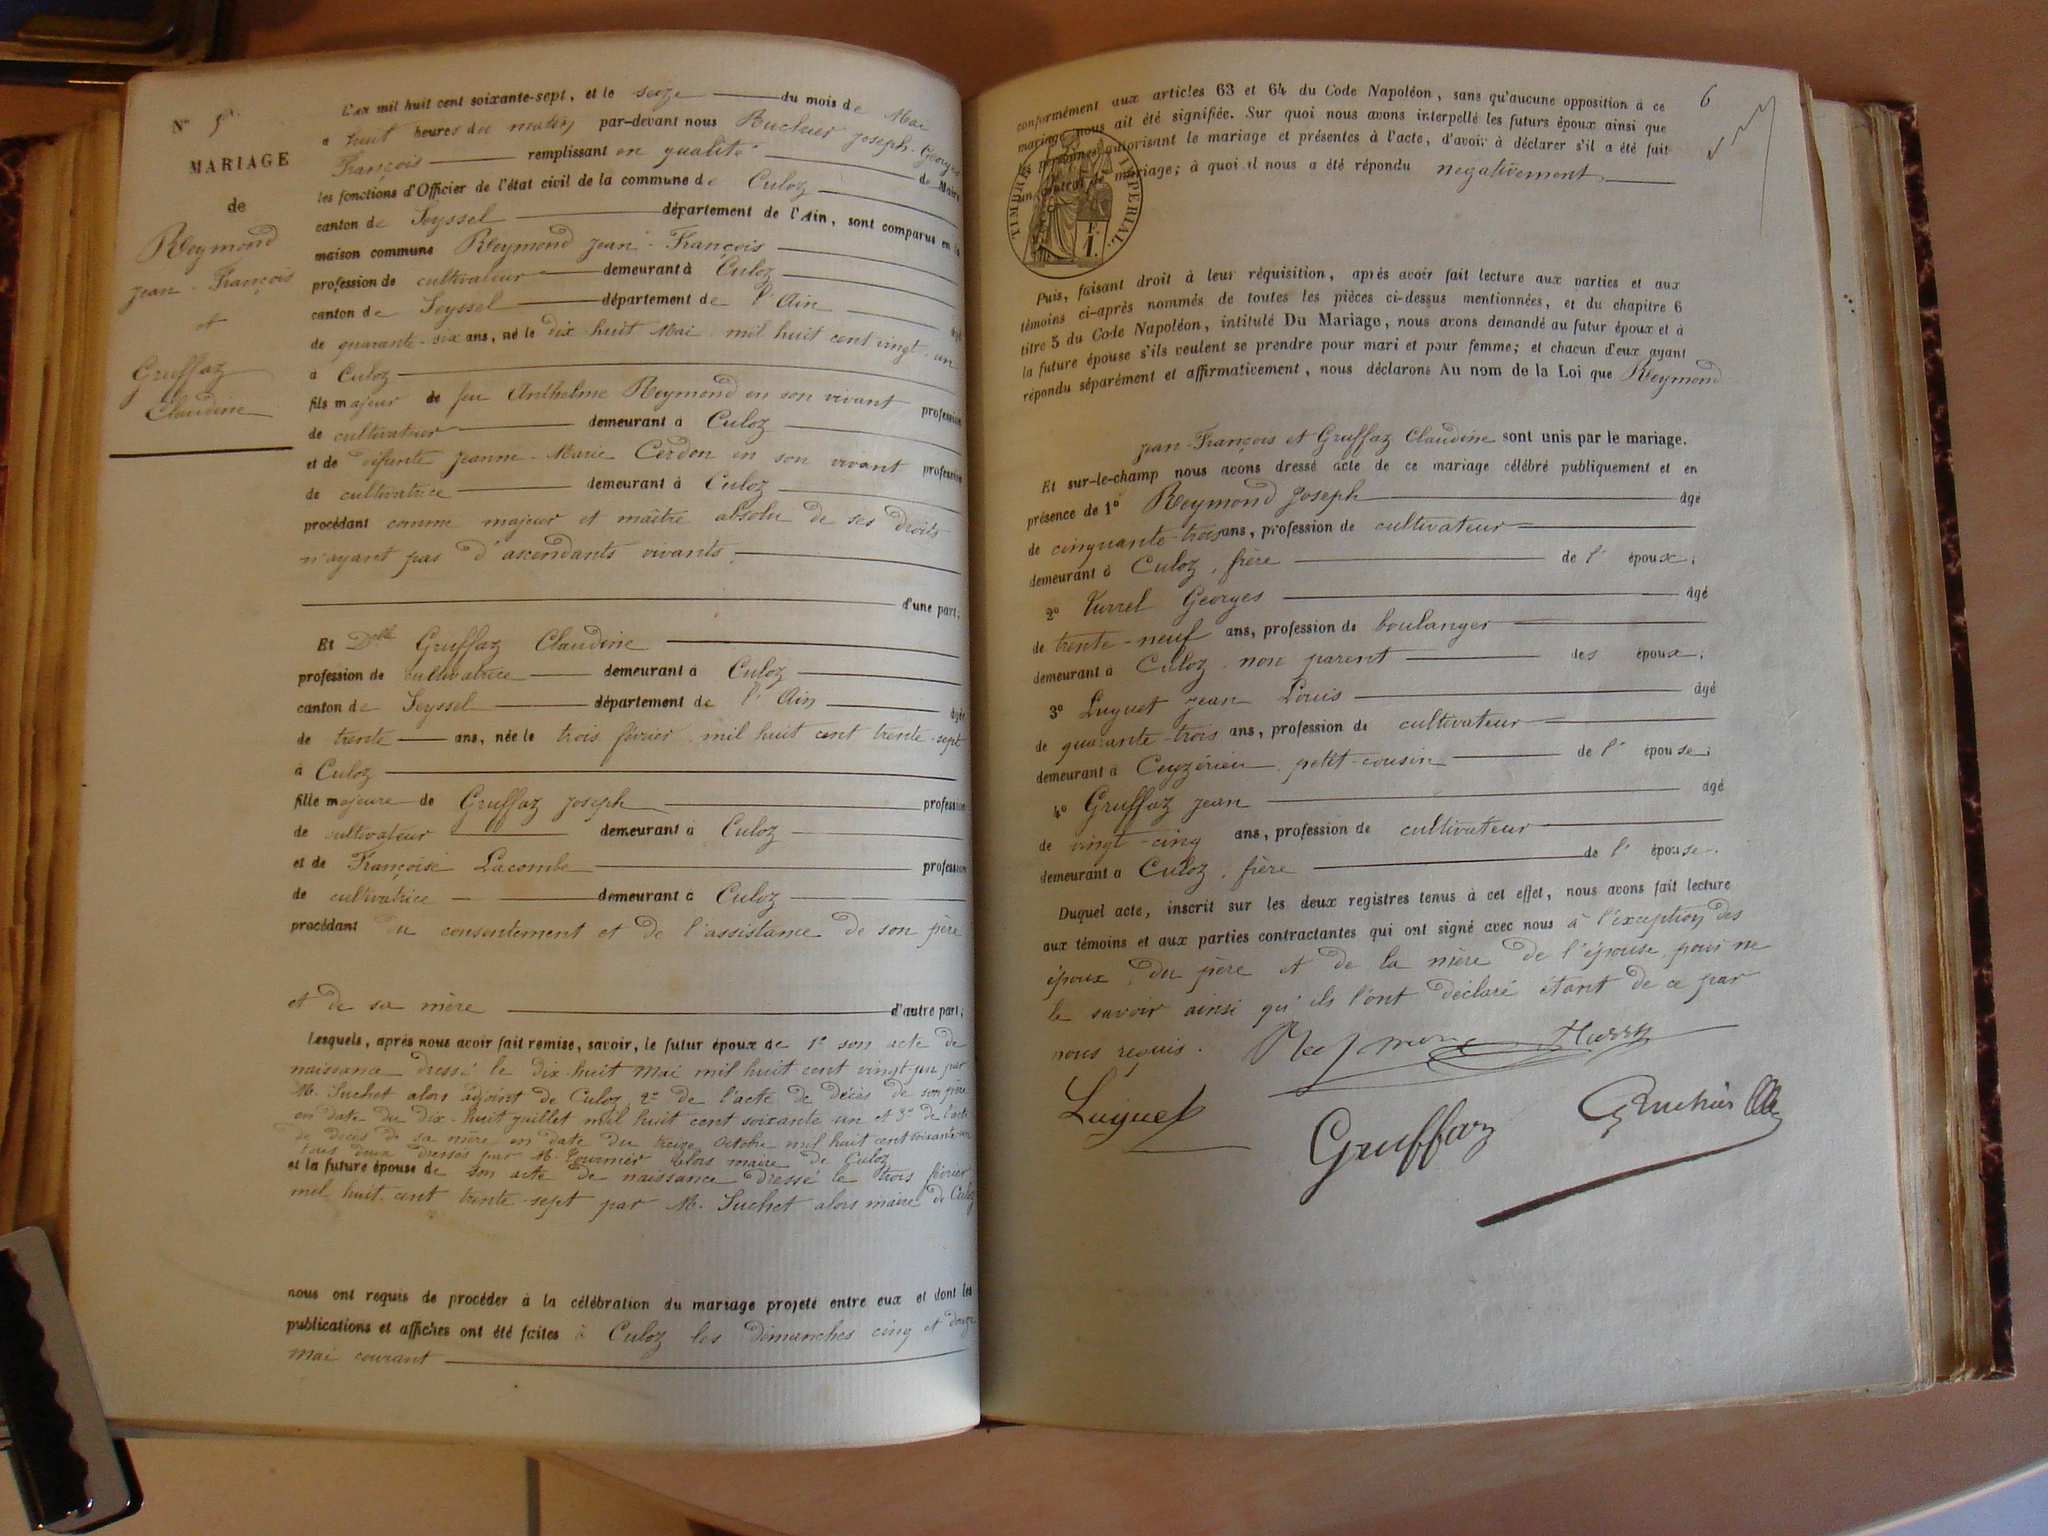 N° 5
MARIAGE
de
Reymond
Jean-François
et
Gruffaz
Claudine
L'an mil huit cent soixante-sept, et le seize du mois de Mai
à huit heures du matin, par-devant nous Ruchier Joseph-Georges
François remplissant en qualité de Maire
les fonctions d'Officier de l'état civil de la commune de Culoz
canton de Seyssel département de l'Ain, sont comparus en la
maison commune Reymond Jean-François
profession de cultivateur demeurant à Culoz
canton de Seyssel département de l'Ain âgé
de quarante-six ans, né le dix-huit Mai mil huit cent vingt-un
à Culoz
fils majeur de feu Anthelme Reymond en son vivant profession
de cultivateur demeurant à Culoz
et de défunte Jeanne-Marie Cerdon en son vivant profession
de cultivatrice demeurant à Culoz
procédant comme majeur et maître absolu de ses droits
n'ayant pas d'ascendants vivants.
d'une part;
Et Delle Gruffaz Claudine
profession de cultivatrice demeurant à Culoz
canton de Seyssel département de l'Ain âgée
de trente ans, née le trois février mil huit cent trente-sept
à Culoz
fille majeure de Gruffaz Joseph profession
de cultivateur demeurant à Culoz
et de Françoise Lacombe profession
de cultivatrice demeurant à Culoz
procédant du consentement et de l'assistance de son père
et de sa mère d'autre part;
Lesquels, après nous avoir fait remise, savoir, le futur époux de 1° son acte de
naissance dressé le dix-huit Mai mil huit cent vingt-un par
M. Suchet alors adjoint de Culoz, 2° de l'acte de décès de son père
en date du dix-huit juillet mil huit cent soixante un et 3° de l'acte
de décès de sa mère en date du treize octobre mil huit cent soixante-un
tous deux dressés par M. Tournier alors maire de Culoz
et la future épouse de son acte de naissance dressé le trois février
mil huit cent trente-sept par M. Suchet alors maire de Culoz
nous ont requis de procéder à la célébration du mariage projeté entre eux et dont les
publications et affiches ont été faites à Culoz les dimanches cinq et douze
mai courant
6
conformément aux articles 63 et 64 du Code Napoléon, sans qu'aucune opposition à ce
mariage nous ait été signifiée. Sur quoi nous avons interpellé les futurs époux ainsi que
les personnes autorisant le mariage et présentes à l'acte, d'avoir à déclarer s'il a été fait
un contrat de mariage; à quoi il nous a été répondu négativement.
TIMBRE IMPERIAL
F.
1.
Puis, faisant droit à leur réquisition, après avoir fait lecture aux parties et aux
témoins ci-après nommés de toutes les pièces ci-dessus mentionnées, et du chapitre 6
titre 5 du Code Napoléon, intitulé Du Mariage, nous avons demandé au futur époux et à
la future épouse s'ils veulent se prendre pour mari et pour femme; et chacun d'eux ayant
répondu séparément et affirmativement, nous déclarons Au nom de la Loi que Reymond
Jean-François et Gruffaz Claudine sont unis par le mariage.
Et sur-le-champ nous avons dressé acte de ce mariage célébré publiquement et en
présence de 1° Reymond Joseph âgé
de cinquante-trois ans, profession de cultivateur
demeurant à Culoz, frère de l'époux;
2° Hurrel Georges âgé
de trente-neuf ans, profession de boulanger
demeurant à Culoz non parent des époux;
3° Luguet Jean Louis âgé
de quarante-trois ans, profession de cultivateur
demeurant à Ceyzérieu, petit-cousin de l'épouse;
4° Gruffaz Jean âgé
de vingt-cinq ans, profession de cultivateur
demeurant à Culoz, frère de l'épouse.
Duquel acte, inscrit sur les deux registres tenus à cet effet, nous avons fait lecture
aux témoins et aux parties contractantes qui ont signé avec nous à l'exception des
époux, du père et de la mère de l'épouse pour ne
le savoir ainsi qu'ils l'ont déclaré étant de ce par
nous requis.
Reymond
Luiguet
Gruffaz
Ruchier